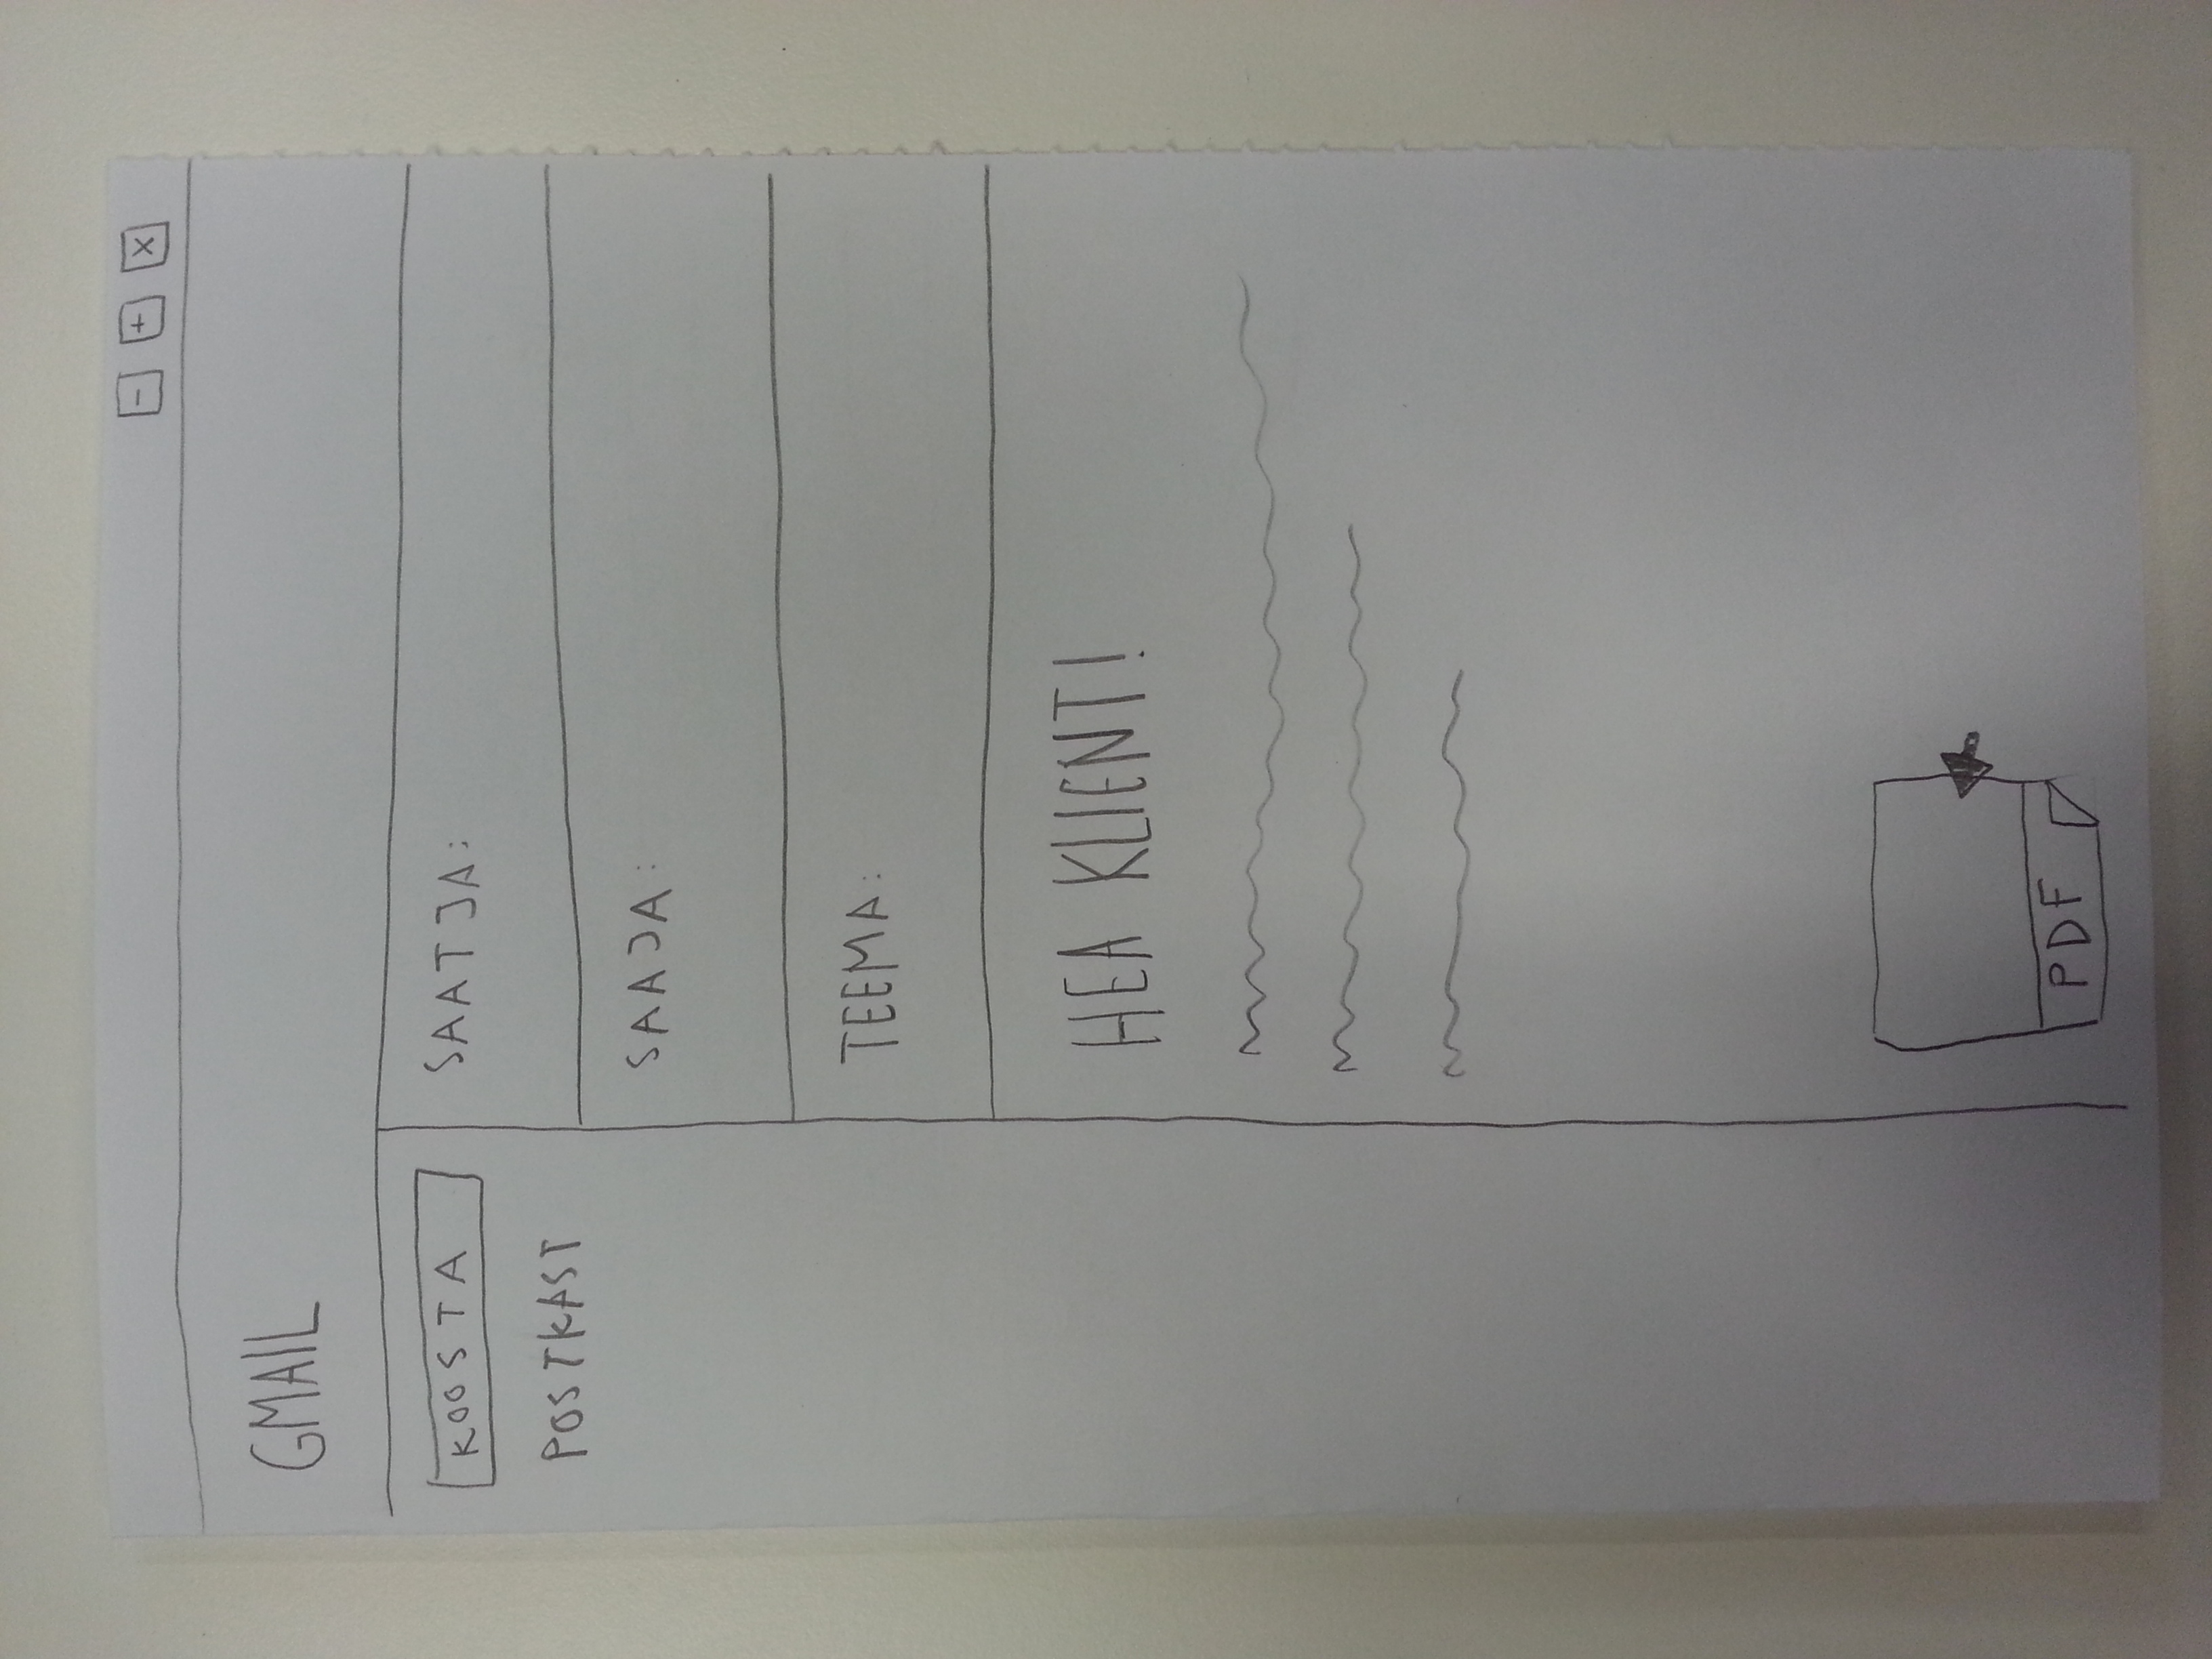 - + X
GMAIL
KOOSTA
POSTKAST
SAATJA:
SAAJA:
TEEMA:
HEA KLIENT!
PDF